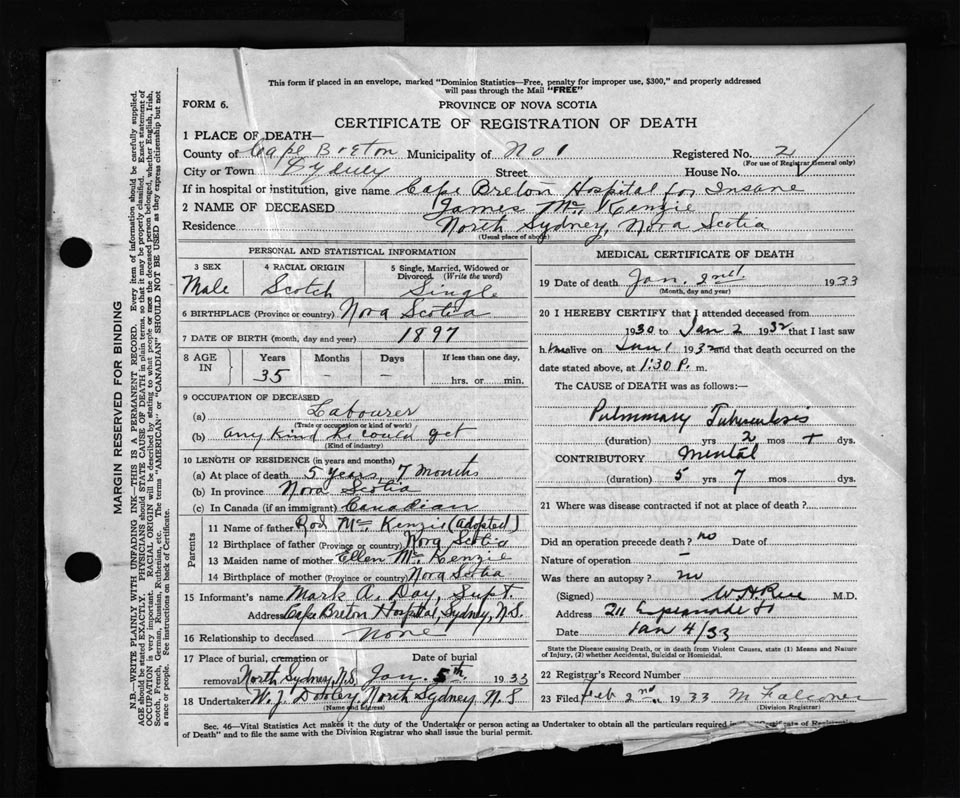 This form if placed in an envelope, marked "Dominion Statistics—Free, penalty for improper use, $300," and properly addressed
will pass through the Mail "FREE"
FORM 6.
PROVINCE OF NOVA SCOTIA
CERTIFICATE OF REGISTRATION OF DEATH
1 PLACE OF DEATH—
County of Cape Breton Municipality of No 1 Registered No. 2
(For use of Registrar General only)
City or Town Sydney Street House No.
If in hospital or institution, give name Cape Breton Hospital for Insane
2 NAME OF DECEASED James Mc Kenzie
Residence North Sydney, Nova Scotia
(Usual place of abode)
PERSONAL AND STATISTICAL INFORMATION
3 SEX 4 RACIAL ORIGIN 5 Single, Married, Widowed or
Divorced. (Write the word)
Male Scotch Single
6 BIRTHPLACE (Province or country) Nova Scotia
7 DATE OF BIRTH (month, day and year) 1897
8 AGE IN Years Months Days If less than one day,
35 – – hrs. or min.
9 OCCUPATION OF DECEASED
(a) Labourer
(Trade or occupation or kind of work)
(b) any kind he could get
(Kind of industry)
10 LENGTH OF RESIDENCE (in years and months)
(a) At place of death 5 years, 7 months
(b) In province Nova Scotia
(c) In Canada (if an immigrant) Canadian
Parents
11 Name of father Rod Mc Kenzie (adopted)
12 Birthplace of father (Province or country) Nova Scotia
13 Maiden name of mother Ellen Mc Kenzie
14 Birthplace of mother (Province or country) Nova Scotia
15 Informant's name Mark A. Day, Supt.
Address Cape Breton Hospital, Sydney, N.S.
16 Relationship to deceased None
17 Place of burial, cremation or Date of burial
removal North Sydney, N.S. Jan. 5th. 1933
18 Undertaker W. J. Dooley, North Sydney, N S
(Name and address)
MEDICAL CERTIFICATE OF DEATH
19 Date of death Jan. 2nd. 1933
(Month, day and year)
20 I HEREBY CERTIFY that I attended deceased from
1930 to Jan 2 1932 that I last saw
h im alive on Jan 1 1932 and that death occurred on the
date stated above, at 1:30 P. m.
The CAUSE OF DEATH was as follows:—
Pulmonary Tuberculosis
(duration) yrs 2 mos + dys.
CONTRIBUTORY Mental
(duration) 5 yrs 7 mos dys.
21 Where was disease contracted if not at place of death?
Did an operation precede death? no Date of
Nature of operation –
Was there an autopsy? no
(Signed) M.D.
Address 211 Esplanade St
Date Jan 4/33
State the Disease causing Death, or in death from Violent Causes, state (1) Means and Nature
of Injury, (2) whether Accidental, Suicidal or Homicidal.
22 Registrar's Record Number
23 Filed Feb 2nd. 1933 M Falconer
(Division Registrar)
Sec. 46—Vital Statistics Act makes it the duty of the Undertaker or person acting as Undertaker to obtain all the particulars required in "Certificate of Registration
of Death" and to file the same with the Division Registrar who shall issue the burial permit.
MARGIN RESERVED FOR BINDING
N.B.—WRITE PLAINLY WITH UNFADING INK—THIS IS A PERMANENT RECORD. Every item of information should be carefully supplied.
AGE should be stated EXACTLY. PHYSICIANS should STATE CAUSE OF DEATH in plain terms, so that it may be properly classified. Exact statement of
OCCUPATION is very important. RACIAL ORIGIN will be described by stating to what people or race the deceased person belonged, whether English, Irish,
Scotch, French, German, Russian, Ruthenian, etc. The terms "AMERICAN" or "CANADIAN" SHOULD NOT BE USED as they express citizenship but not
a race or people. See instructions on back of Certificate.